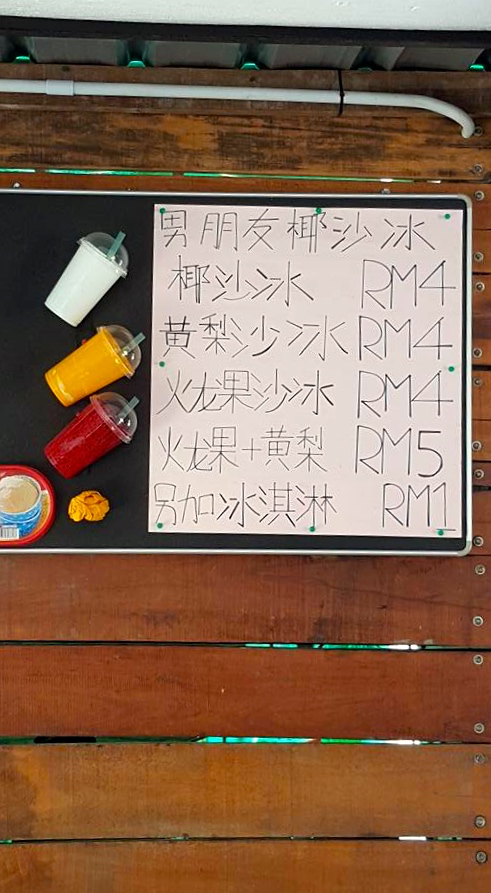 男朋友椰沙冰
椰沙冰 RM4
黄梨沙冰 RM4
火龙果沙冰 RM4
火龙果+黄梨 RM5
另加冰淇淋 RM1